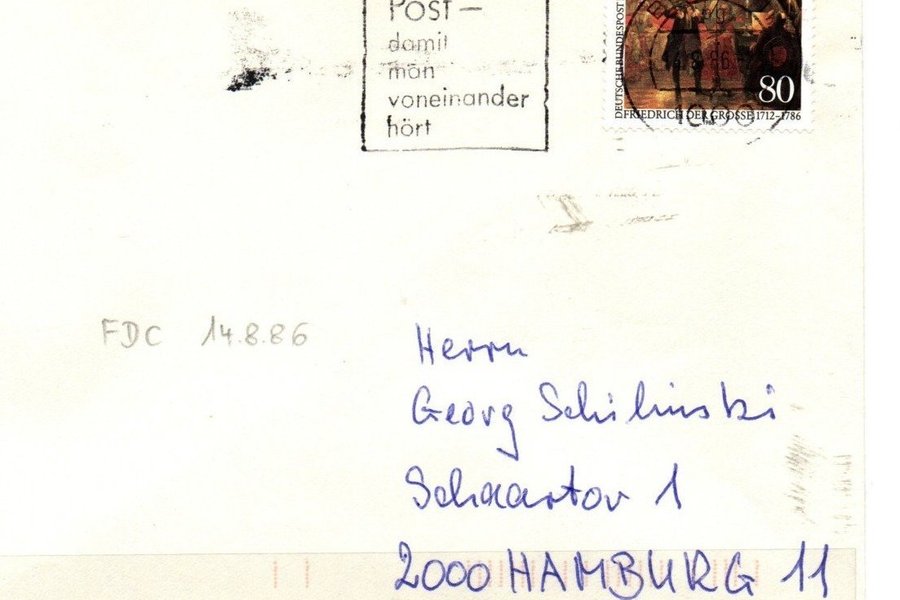 Post –
damit
man
voneinander
hört
DEUTSCHE BUNDESPOST
80
FRIEDRICH DER GROSSE 1712–1786
FDC 14.8.86
Herrn
Georg Schilinski
Schaartor 1
2000 HAMBURG 11